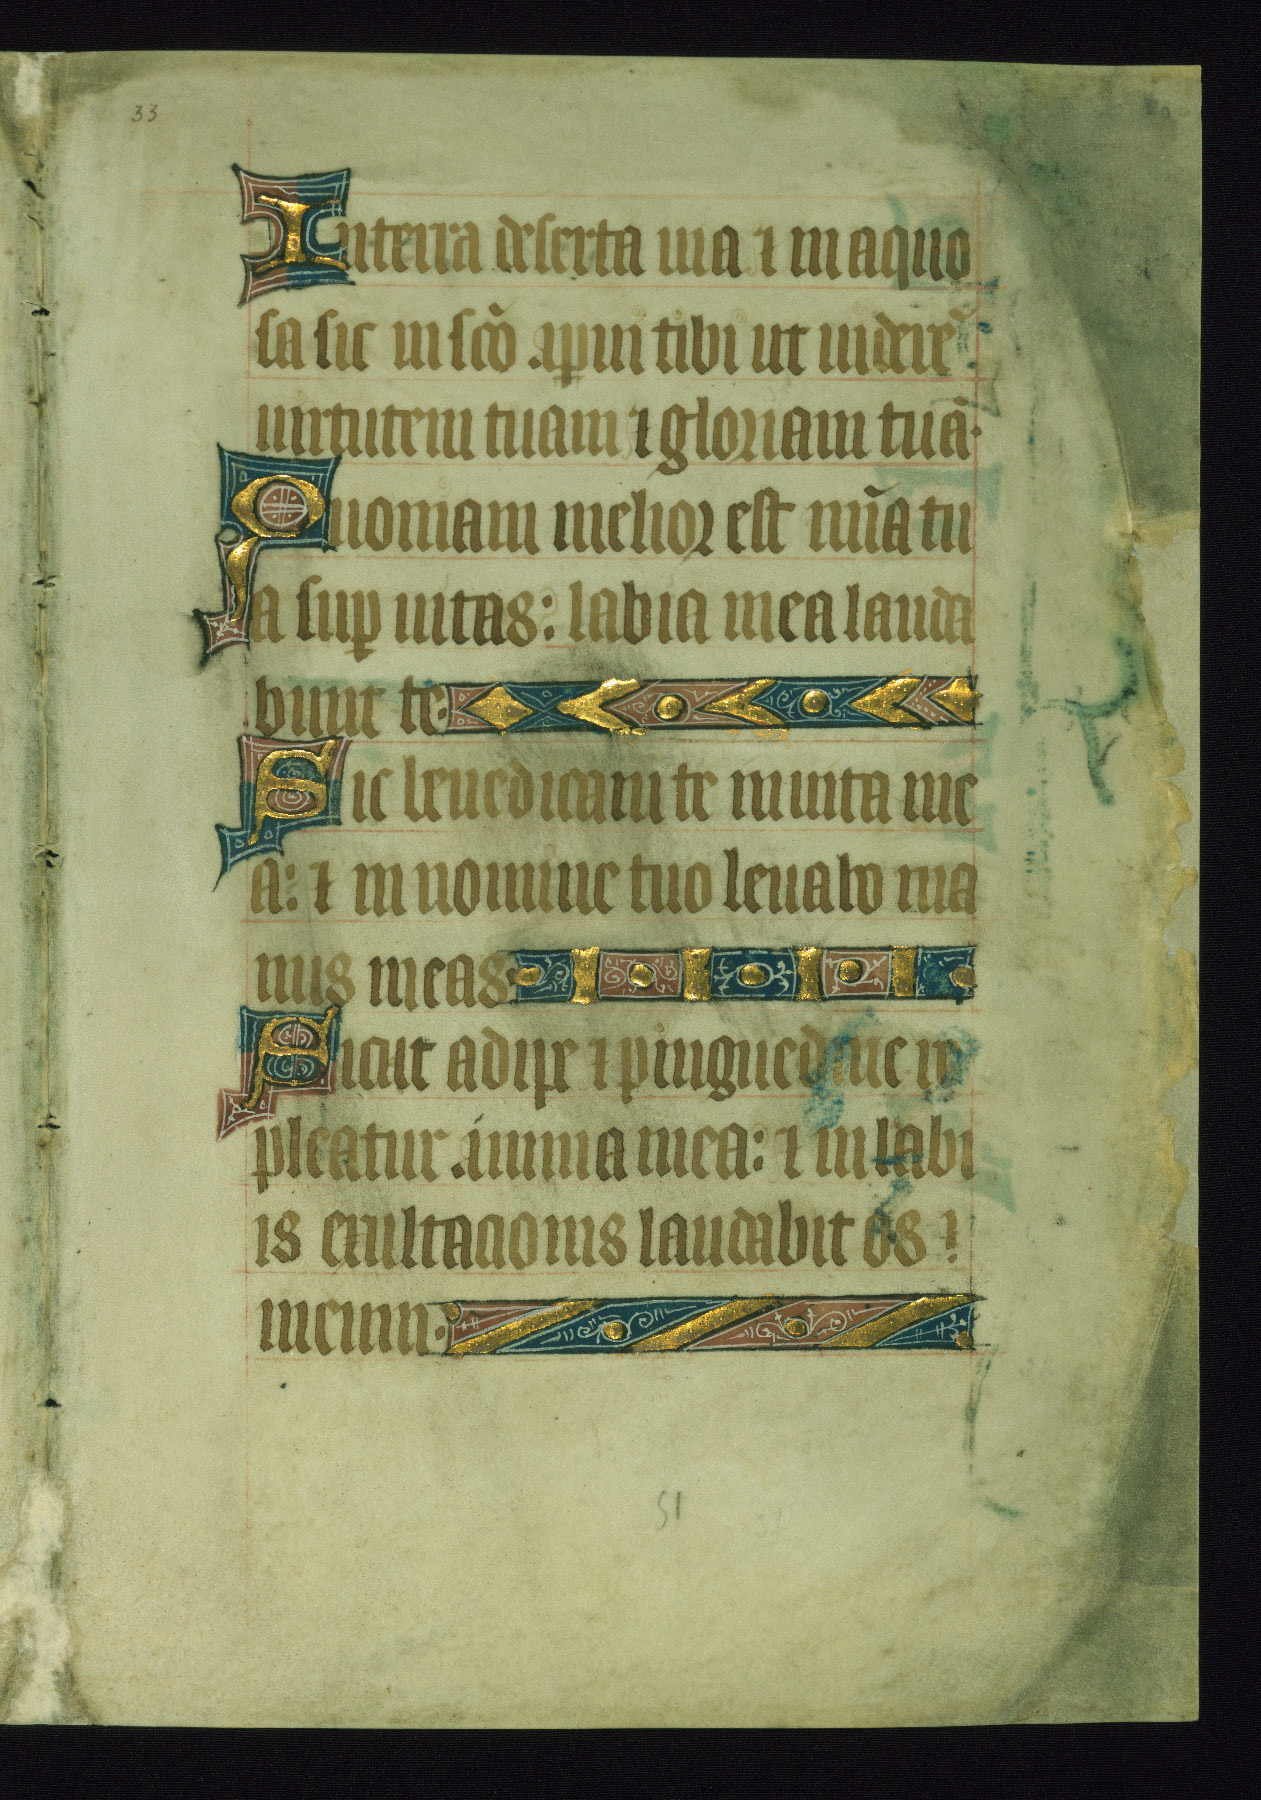 33
In terra deserta uia ⁊ in aquo
sa sic in sc̃o apꝑui tibi ut uidere᷑
uirtutem tuam ⁊ gloriam tuã.
Quoniam melior est mĩa tu
a suꝑ uitas: labia mea lauda
bunt te.
Sic benedicam te in uita me
a: ⁊ in nomine tuo leuabo ma
nus meas.
Sicut adipe ⁊ pinguedine re
pleatur anima mea: ⁊ in labi
is exultacionis laudabit os !
meum.
51